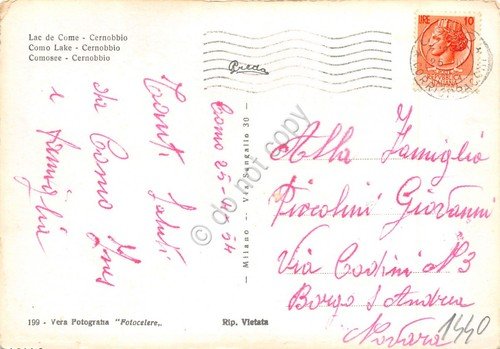 Lac de Come - Cernobbio
Como Lake - Cernobbio
Comosee - Cernobbio
LIRE 10
Como 25-
Tanti Saluti
da Como Ines
e famiglia
Milano - Via Sangallo 30
do not copy
Alla Famiglia
Piccolini Giovanni
Via Cadini N. 3
Borgo S. Andrea
Novara
1440
199 - Vera Fotografia "Fotocelere„
Rip. Vietata